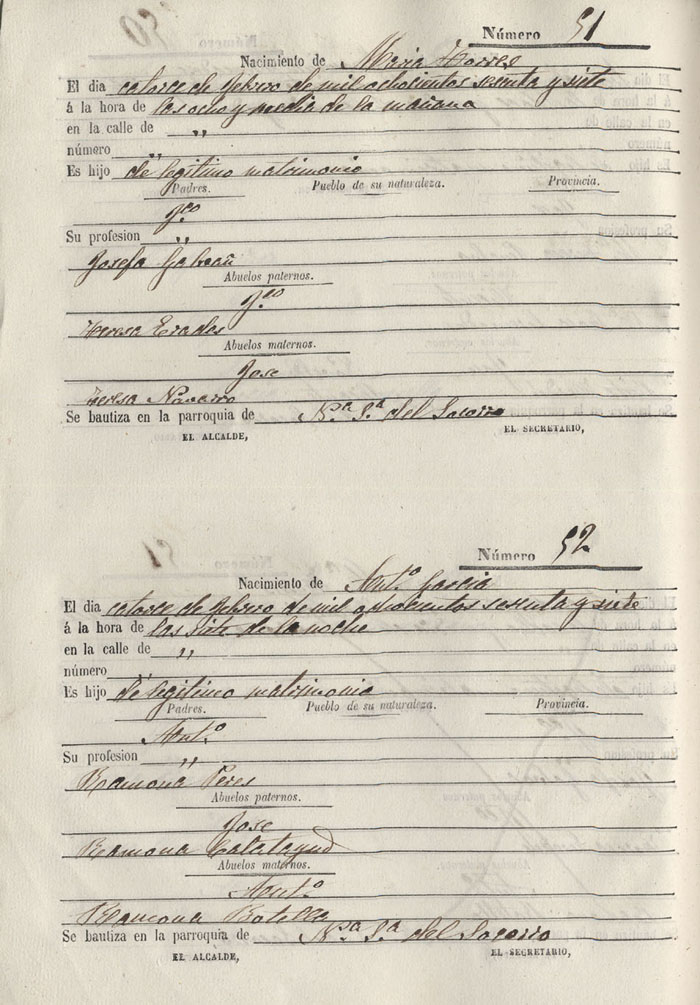 Número 51
Nacimiento de Maria Torres
El dia catorce de febrero de mil ochocientos sesenta y siete
á la hora de las ocho y media de la mañana
en la calle de „
número „
Es hijo de legitimo matrimonio
Padres. Pueblo de su naturaleza. Provincia.
Jco
Su profesion „
Josefa Galvañ
Abuelos paternos.
Jco
Teresa Erades
Abuelos maternos.
Jose
Teresa Navarro
Se bautiza en la parroquia de Nª Sª del Socorro
EL ALCALDE, EL SECRETARIO,
Número 52
Nacimiento de Antº Garcia
El dia catorce de febrero de mil ochocientos sesenta y siete
á la hora de las siete de la noche
en la calle de „
número „
Es hijo de legitimo matrimonio
Padres. Pueblo de su naturaleza. Provincia.
Antº
Su profesion „
Ramona Peres
Abuelos paternos.
Jose
Ramona Calatayud
Abuelos maternos.
Antº
Ramona Botella
Se bautiza en la parroquia de Nª Sª del Socorro
EL ALCALDE, EL SECRETARIO,